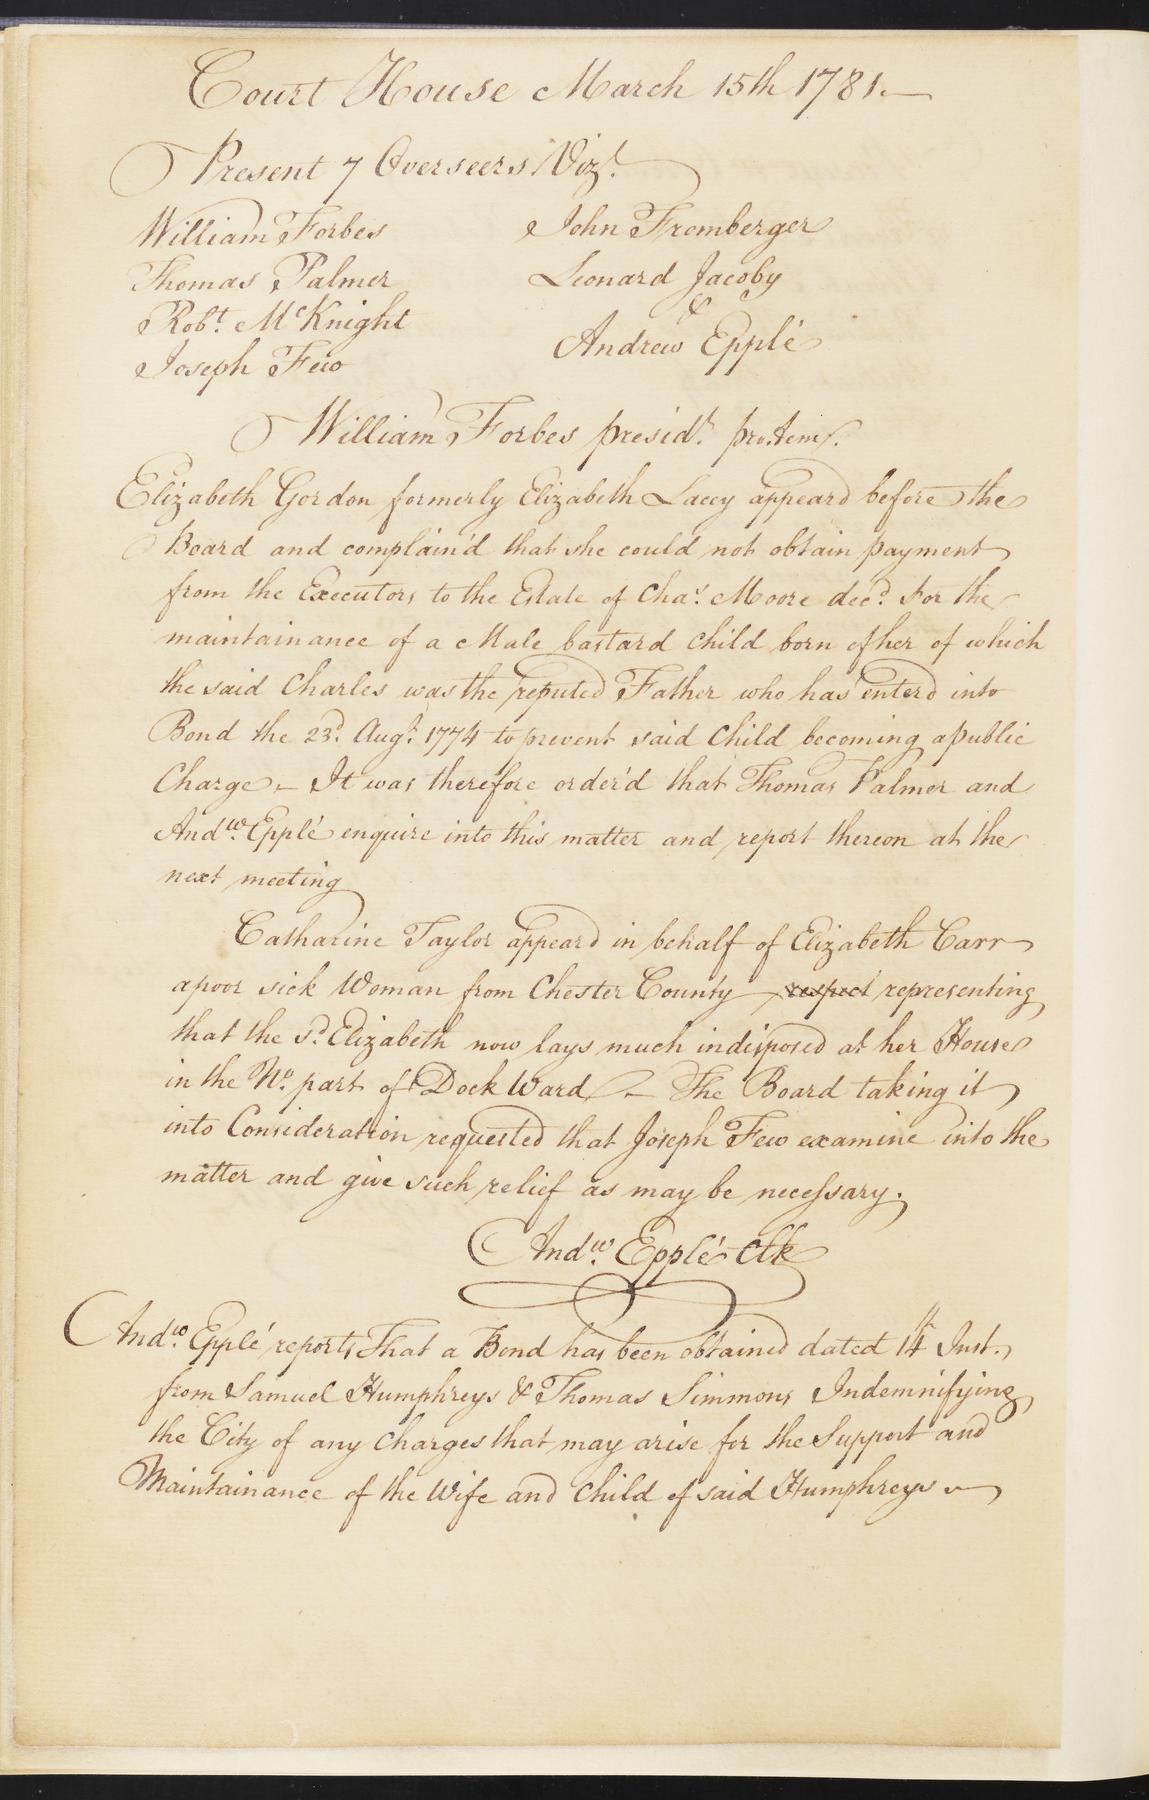 Court House March 15th 1781.—
Present 7 Overseers Vizt.
William Forbes
Thomas Palmer
Robt. McKnight
Joseph Few
John Fromberger
Leonard Jacoby
&
Andrew Epplé
William Forbes presidt. pro.tem.
Elizabeth Gordon formerly Elizabeth Lacey appeard before the
Board and complain'd that she could not obtain payment
from the Executors to the Estate of Chas. Moore decd. for the
maintainance of a Male bastard child born of her of which
the said Charles was the reputed Father who has enterd into
Bond the 23d. Augt. 1774 to prevent said Child becoming a public
Charge,— It was therefore order'd that Thomas Palmer and
Andw. Epplé enquire into this matter and report thereon at the
next meeting
Catharine Taylor appeard in behalf of Elizabeth Carr
a poor sick Woman from Chester County respect representing
that the sd. Elizabeth now lays much indisposed at her House
in the No. part of Dock Ward.— The Board taking it
into Consideration requested that Joseph Few examine into the
matter and give such relief as may be necessary.
Andw. Epplé Clk
Andw. Epplé reports That a Bond has been obtained dated 14th Inst.,
from Samuel Humphreys & Thomas Simmons Indemnifying
the City of any Charges that may arise for the Support and
Maintainance of the Wife and Child of said Humphreys